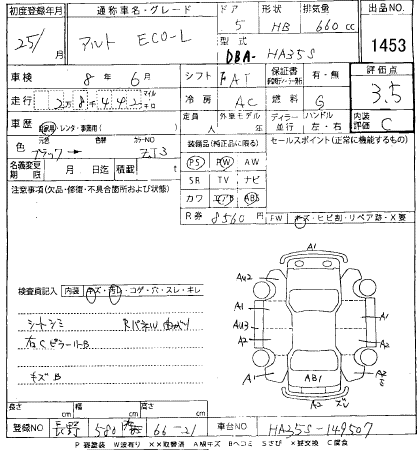 初度登録年月 通称車名・グレード ドア 形状 排気量 出品NO.
25/ 月 アルト ECO-L 5 HB 660 cc 1453
型式 DBA-HA35S
車検 8年 6月 シフト FAT 保証書 有・無 評価点
走行 28442 キロ マイル 冷房 AC 燃料 G 3.5
車歴 自家用・レンタ・事業用( ) 定員 人 外車モデル 年 ディーラー 並行 ハンドル 左・右 内装評価 C
色 元色 ブラック → 色 カラーNO ZJ3 装備品(純正品に限る) セールスポイント(正常に機能するもの)
PS PW AW
名義変更期限 月 日迄 積載 SR TV ナビ
注意事項(欠品・修復・不具合箇所および状態) カワ エアB ABS
R券 8560円 FW キズ・ヒビ割・リペア跡・X要
A1
検査員記入 内装 キズ・汚レ・コゲ・穴・スレ・キレ AU2 A1
シートシミ Rパネル曲がり A1 A1
右CピラーUB AU3 A2
A2
キズB A1 AB1 A2
A2
長さ cm 幅 cm 高さ cm
登録NO 長野 580 66-21 車台NO HA35S-149507
P要塗装 W波有り XX取替済 A線キズ Bヘコミ Sさび X要交換 C腐食